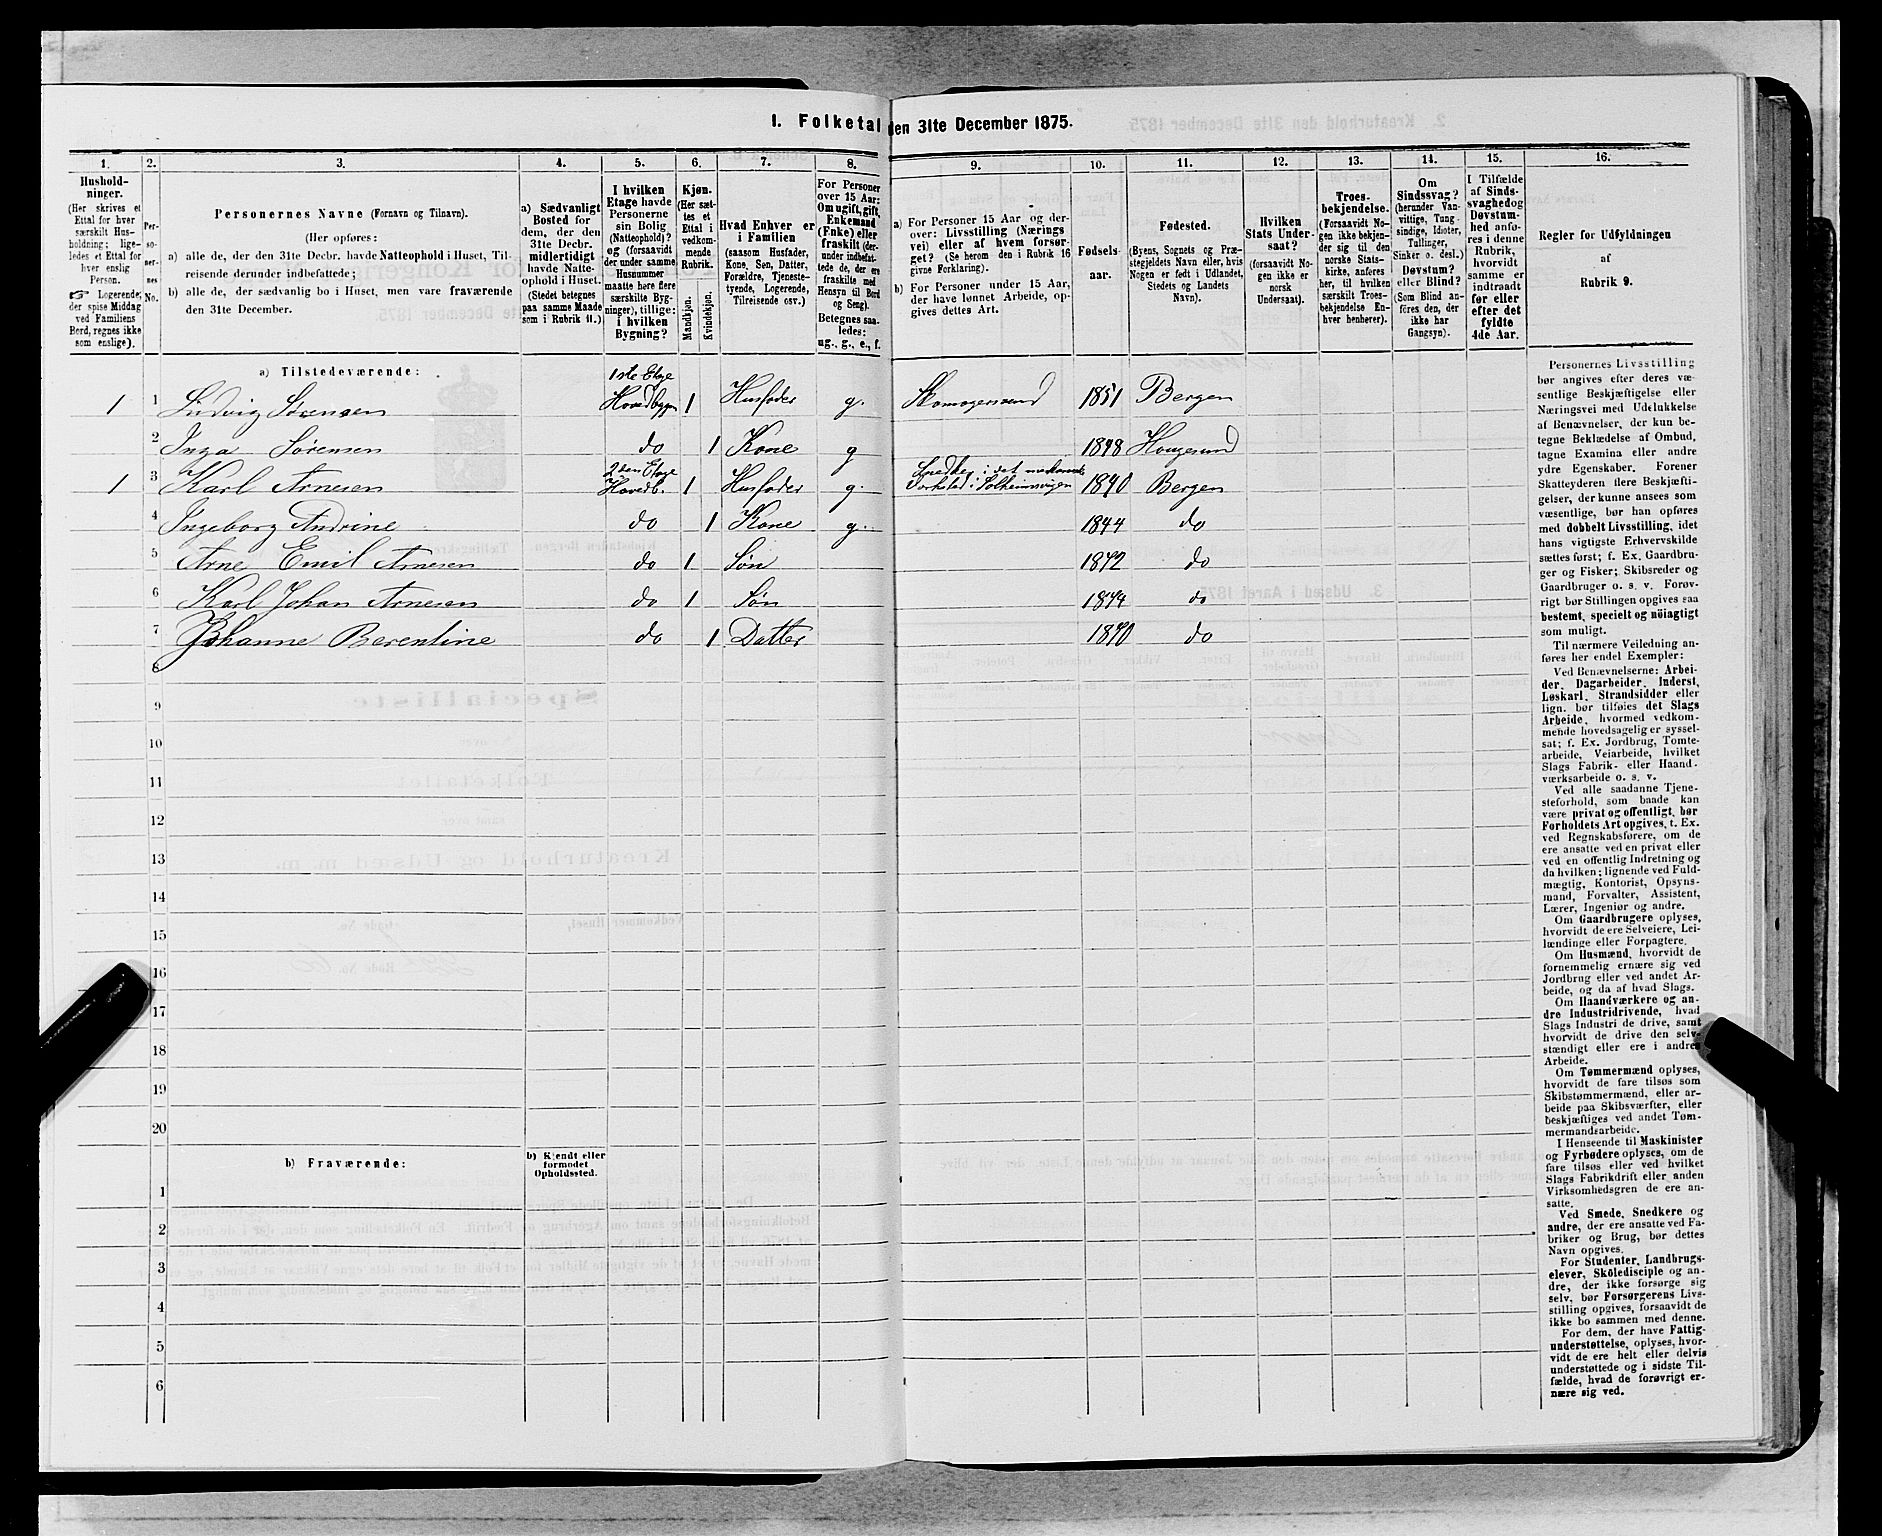 1. Folketal den 31te December 1875.
1. 2. 3. 4. 5. 6. 7. 8. 9. 10. 11. 12. 13. 14. 15. 16.
Hushold-
ninger.
(Her skrives et
Ettal for hver
særskilt Hus-
holdning; lige-
ledes et Ettal for
hver enslig
Person.
☞ Logerende,
der spise Middag
ved Familiens
Bord, regnes ikke
som enslige).
Per-
so-
ner-
nes
No.
Personernes Navne (Fornavn og Tilnavn).
(Her opføres:
a) alle de, der den 31te Decbr. havde Natteophold i Huset, Til-
reisende derunder indbefattede;
b) alle de, der sædvanlig bo i Huset, men vare fraværende
den 31te December.
a) Sædvanligt
Bosted for
dem, der den
31te Decbr.
midlertidigt
havde Natte-
ophold i Huset.
(Stedet betegnes
paa samme Maade
som i Rubrik 11.)
I hvilken
Etage havde
Personerne
sin Bolig
(Natteophold)?
og (forsaavidt
der under samme
Husnummer
maatte høre flere
særskilte Byg-
ninger), tillige:
i hvilken
Bygning?
Kjøn.
(Her sæt-
tes et
Ettal i
vedkom-
mende
Rubrik.
Mandkjøn.
Kvindekjøn.
Hvad Enhver er
i Familien
(saasom Husfader,
Kone, Søn, Datter,
Forældre, Tjeneste-
tyende, Logerende,
Tilreisende osv.)
For Personer
over 15 Aar:
Om ugift, gift,
Enkemand
(Enke) eller
fraskilt (der-
under indbefat-
tede de, der ere
fraskilte med
Hensyn til Bord
og Seng).
Betegnes saa-
ledes:
ug., g., e., f.
a) For Personer 15 Aar og der-
over: Livsstilling (Nærings-
vei) eller af hvem forsør-
get? (Se herom den i Rubrik 16
givne Forklaring).
b) For Personer under 15 Aar,
der have lønnet Arbeide, op-
gives dettes Art.
Fødsels-
aar.
Fødested.
(Byens, Sognets og Præ-
stegjeldets Navn eller, hvis
Nogen er født i Udlandet,
Stedets og Landets
Navn).
Hvilken
Stats Under-
saat?
(forsaavidt No-
gen ikke er
norsk
Undersaat).
Troes-
bekjendelse.
(Forsaavidt No-
gen ikke bekjen-
der sig til den
norske Stats-
kirke, anføres
her, til hvilken
særskilt Troes-
bekjendelse En-
hver henhører).
Om
Sindssvag?
(herunder Van-
vittige, Tung-
sindige, Idioter,
Tullinger,
Sinker o. desl.)
Døvstum?
eller Blind?
(Som Blind an-
føres den, der
ikke har
Gangsyn).
I Tilfælde
af Sinds-
svaghed og
Døvstum-
hed anfø-
res i denne
Rubrik,
hvorvidt
samme er
indtraadt
før eller
efter det
fyldte
4de Aar.
Regler for Udfyldningen
af
Rubrik 9.
a) Tilstedeværende:
1 1 Ludvig Sørensen 1ste Etage Hovedbygn 1 Husfader g. Skomagersvend 1851 Bergen
2 Inga Sørensen do 1 Kone g 1848 Haugesund
1 3 Karl Arnesen 2den Etage Hovedb. 1 Husfader g. Snedker i det mekaniske Værksted i Solheimsvigen 1840 Bergen
4 Ingeborg Andrine do 1 Kone g. 1844 do
5 Arne Emil Arnesen do 1 Søn 1872 do
6 Karl Johan Arnesen do 1 Søn 1874 do
7 Johanne Berentine do 1 Datter 1870 do
8
9
10
11
12
13
14
15
16
17
18
19
20
b) Fraværende:
b) Kjendt eller
formodet
Opholdssted.
1
2
3
4
5
6
Personernes Livsstilling
bør angives efter deres væ-
sentlige Beskjæftigelse eller
Næringsvei med Udelukkelse
af Benævnelser, der kun be-
tegne Beklædelse af Ombud,
tagne Examina eller andre
ydre Egenskaber. Forener
Skatteyderen flere Beskjæfti-
gelser, der kunne ansees som
væsentlige, bør han opføres
med dobbelt Livsstilling, idet
hans vigtigste Erhvervskilde
sættes først; f. Ex. Gaardbru-
ger og Fisker; Skibsreder og
Gaardbruger o. s. v. Forøv-
rigt bør Stillingen opgives saa
bestemt, specielt og nöiagtigt
som muligt.
Til nærmere Veiledning an-
føres her endel Exempler:
Ved Benævnelserne: Arbei-
der, Dagarbeider, Inderst,
Løskarl, Strandsidder eller
lign. bør tilføies det Slags
Arbeide, hvormed vedkom-
mende hovedsagelig er syssel-
sat; f. Ex. Jordbrug, Tomte-
arbeide, Veiarbeide, hvilket
Slags Fabrik- eller Haand-
værksarbeide o. s. v.
Ved alle saadanne Tjene-
steforhold, som baade kan
være privat og offentligt, bør
Forholdets Art opgives, t. Ex.
ved Regnskabsførere, om de
ere ansatte ved en privat eller
ved en offentlig Indretning og
da hvilken; lignende ved Fuld-
mægtig, Kontorist, Opsyns-
mand, Forvalter, Assistent,
Lærer, Ingeniør og andre.
Om Gaardbrugere oplyses,
hvorvidt de ere Selveiere, Lei-
lændinge eller Forpagtere.
Om Husmænd, hvorvidt de
fornemmelig ernære sig ved
Jordbrug eller ved andet Ar-
beide, og da af hvad Slags.
Om Haandværkere og an-
dre Industridrivende, hvad
Slags Industri de drive, samt
hvorvidt de drive den selv-
stændigt eller ere i andres
Arbeide.
Om Tømmermænd oplyses,
hvorvidt de fare tilsøs som
Skibstømmermænd, eller ar-
beide paa Skibsværfter, eller
beskjæftiges ved andet Tøm-
mermandsarbeide.
I Henseende til Maskinister
og Fyrbødere oplyses, om de
fare tilsøs eller ved hvilket
Slags Fabrikdrift eller anden
Virksomhedsgren de ere an-
satte.
Ved Smede, Snedkere og
andre, der ere ansatte ved Fa-
briker og Brug, bør dettes
Navn opgives.
For Studenter, Landbrugs-
elever, Skoledisciple og an-
dre, der ikke forsørge sig
selv, bør Forsørgerens Livs-
stilling opgives, forsaavidt de
ikke bo sammen med denne.
For dem, der have Fattig-
understøttelse, oplyses, hvor-
vidt de ere helt eller delvis
understøttede og i sidste Til-
fælde, hvad de forøvrigt er-
nære sig ved.